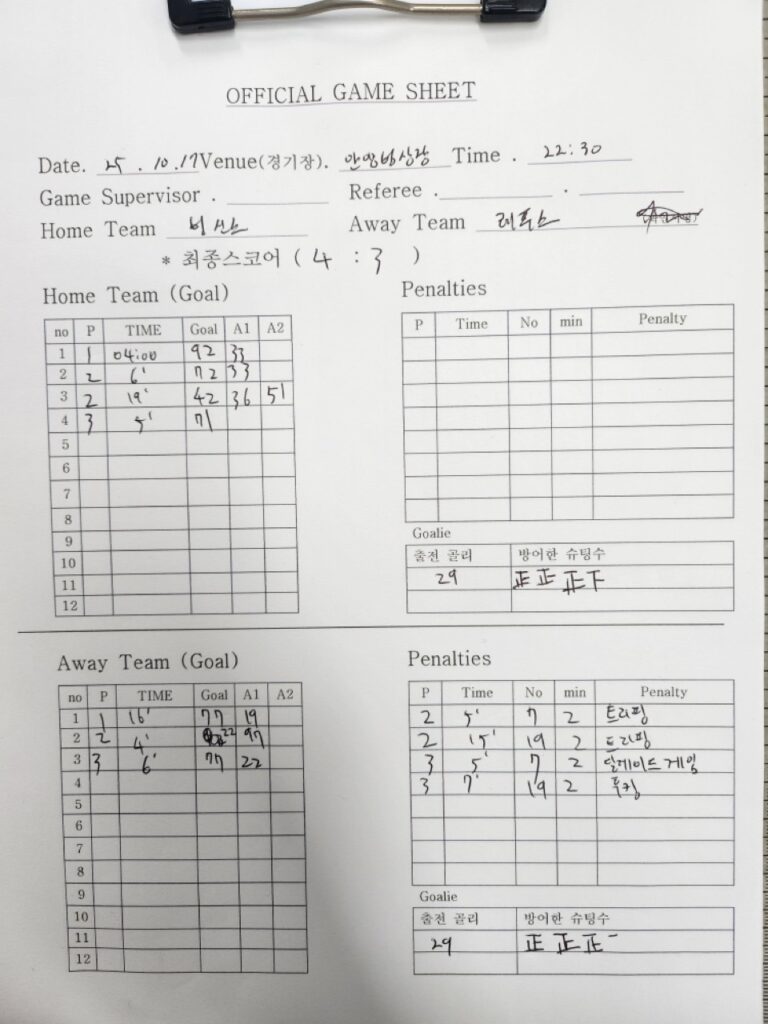 OFFICIAL GAME SHEET
Date. 25 . 10 .17 Venue(경기장). 안양빙상장 Time . 22:30
Game Supervisor . Referee . .
Home Team 비산스 Away Team 레푸스
* 최종스코어 ( 4 : 3 )
Home Team (Goal)
no P TIME Goal A1 A2
1 1 04:00 92 33
2 2 6' 72 33
3 2 19' 42 36 51
4 3 5' 71
5
6
7
8
9
10
11
12
Penalties
P Time No min Penalty
Goalie
출전 골리 방어한 슈팅수
29 正 正 正 下
Away Team (Goal)
no P TIME Goal A1 A2
1 1 16' 77 19
2 2 4' 22 97
3 3 6' 77 22
4
5
6
7
8
9
10
11
12
Penalties
P Time No min Penalty
2 5' 7 2 트리핑
2 15' 19 2 트리핑
3 5' 7 2 딜레이드 게임
3 7' 19 2 훅킹
Goalie
출전 골리 방어한 슈팅수
29 正 正 正 一